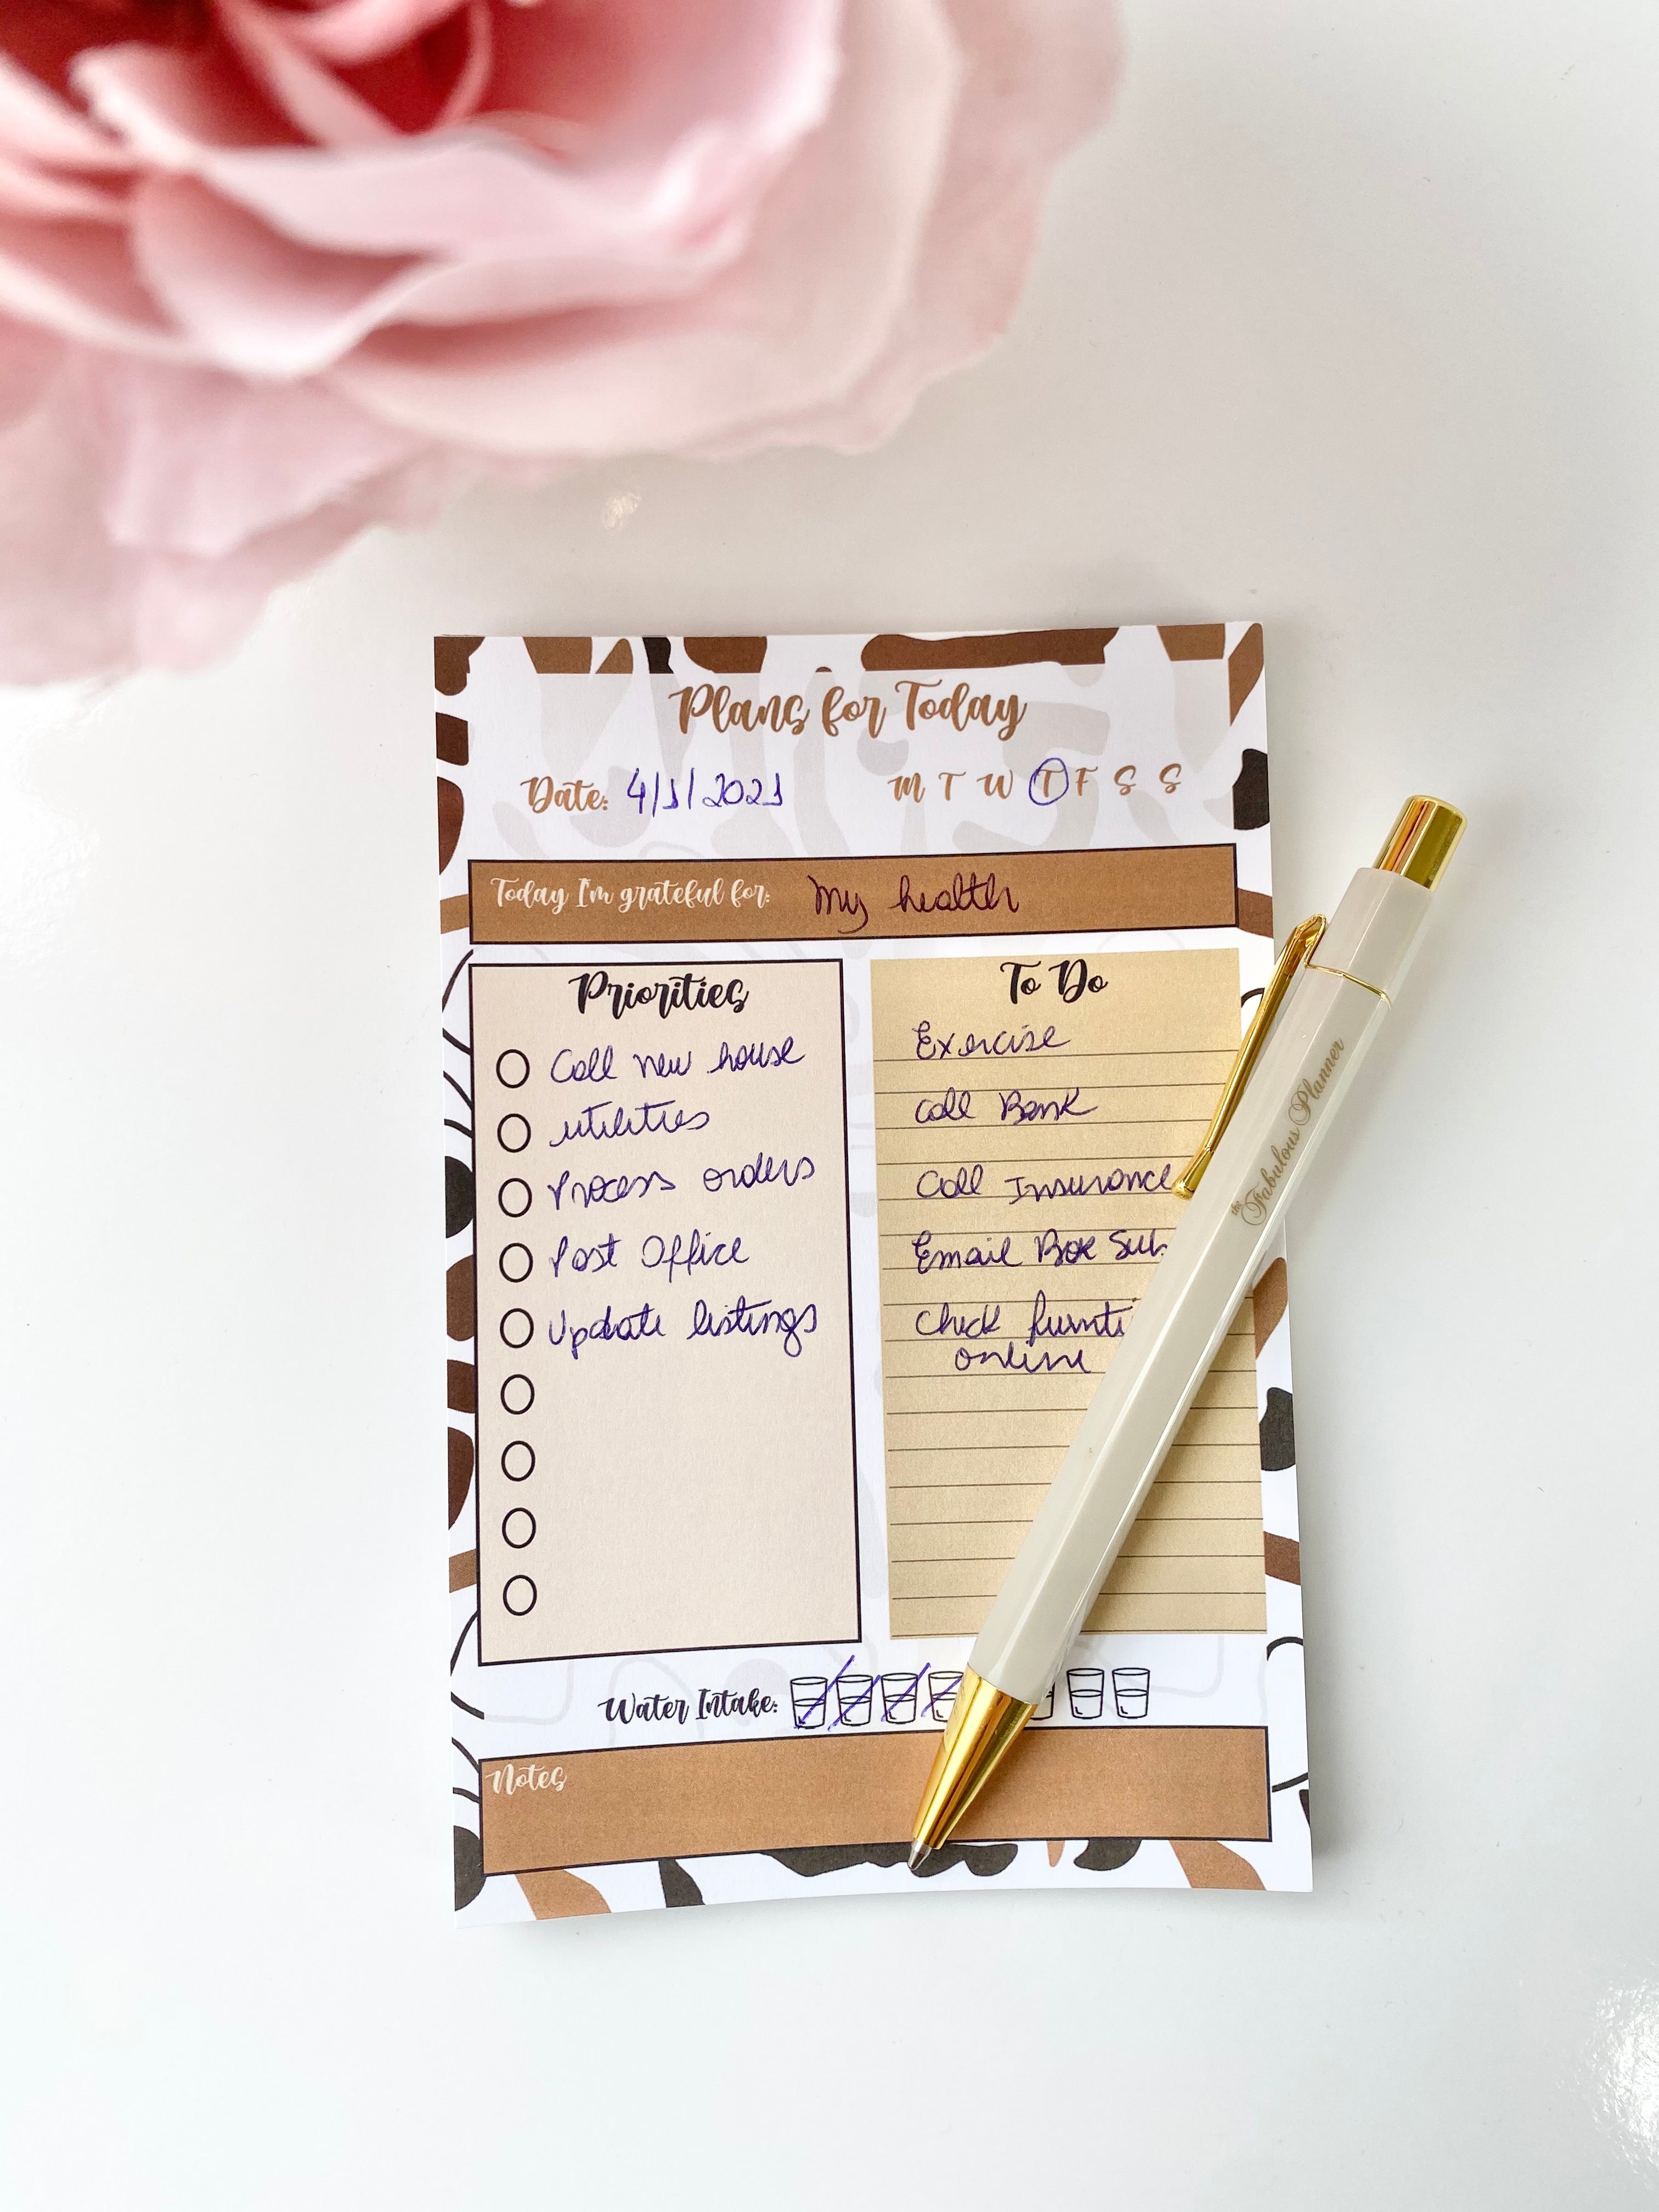 Plans for Today
Date: 4/1/2021 M T W T F S S
Today I'm grateful for: My health
Priorities
Call new house
utilities
Process orders
Post Office
Update listings
To Do
Exercise
Call Bank
Call Insurance
Email Box Sub
Check
online
Water Intake:
Notes
the Fabulous Planner